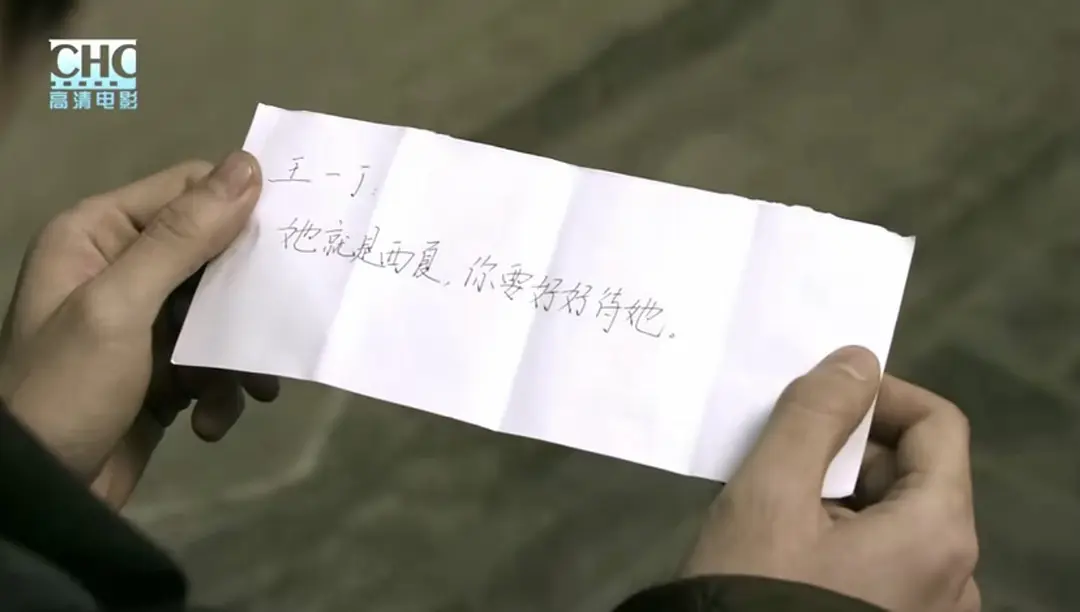 CHC
高清电影
王一丁:
她就是西夏,你要好好待她。